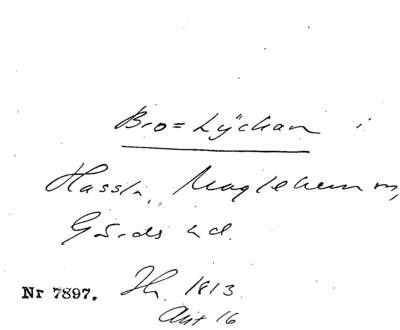 Bro=Lyckan i
Hassle, Maglehem sn,
Gärds hd.
Nr 7897. Hs. 1813.
Akt 16